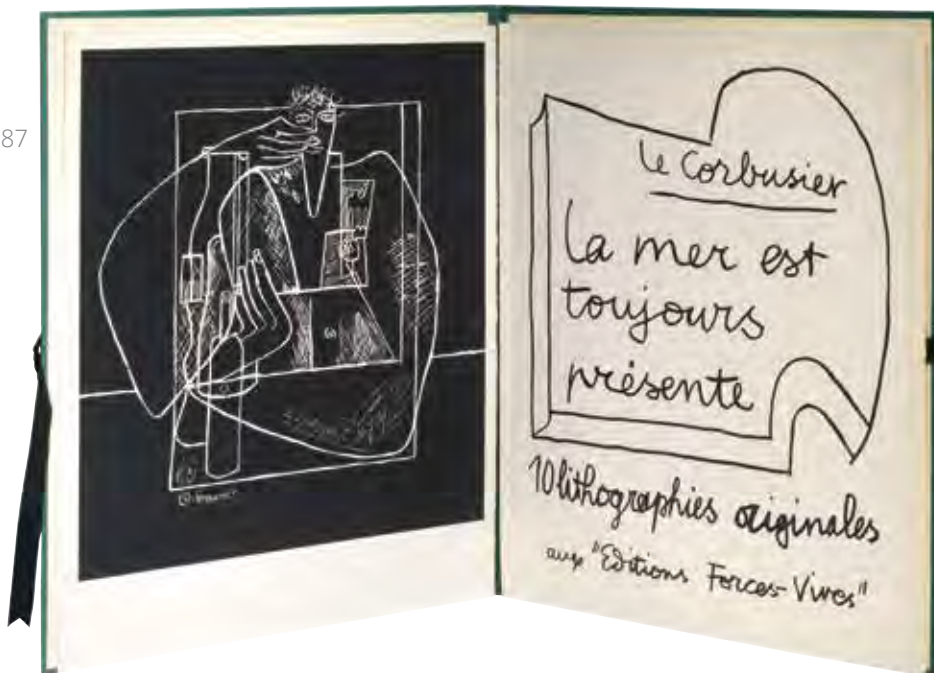 87
Le Corbusier
La mer est
toujours
présente
10 lithographies originales
aux "Editions Forces-Vives"